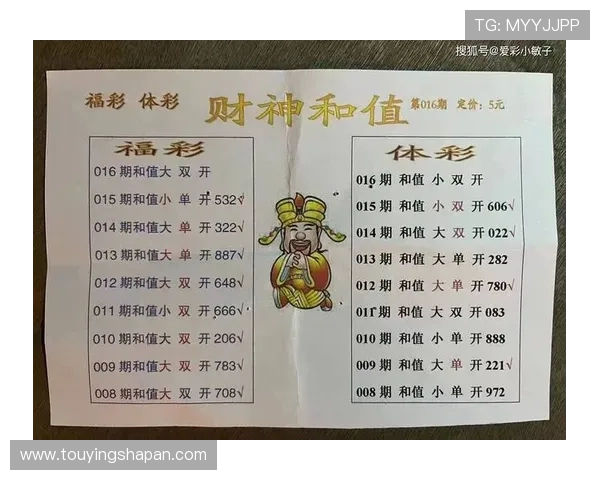 TG: MYYJJPP
搜狐号@爱彩小敏子
福彩 体彩 财神和值 第016期 定价：5元
福彩
016期和值大 双 开
015期和值小 单 开 532√
014期和值大 单 开 322√
013期和值大 单 开 887√
012期和值大 双 开 648√
011期和值小 双 开 666√
010期和值大 双 开 206√
009期和值大 双 开 783√
008期和值大 双 开 708√
体彩
016期 和值 小 双 开
015期 和值 小 双 开 606√
014期 和值 大 双 开 022√
013期 和值 大 单 开 282
012期 和值 大 单 开 780√
011期 和值 大 双 开 083
010期 和值 小 单 开 888
009期 和值 大 单 开 221√
008期 和值 小 单 开 972
www.touyingshapan.com